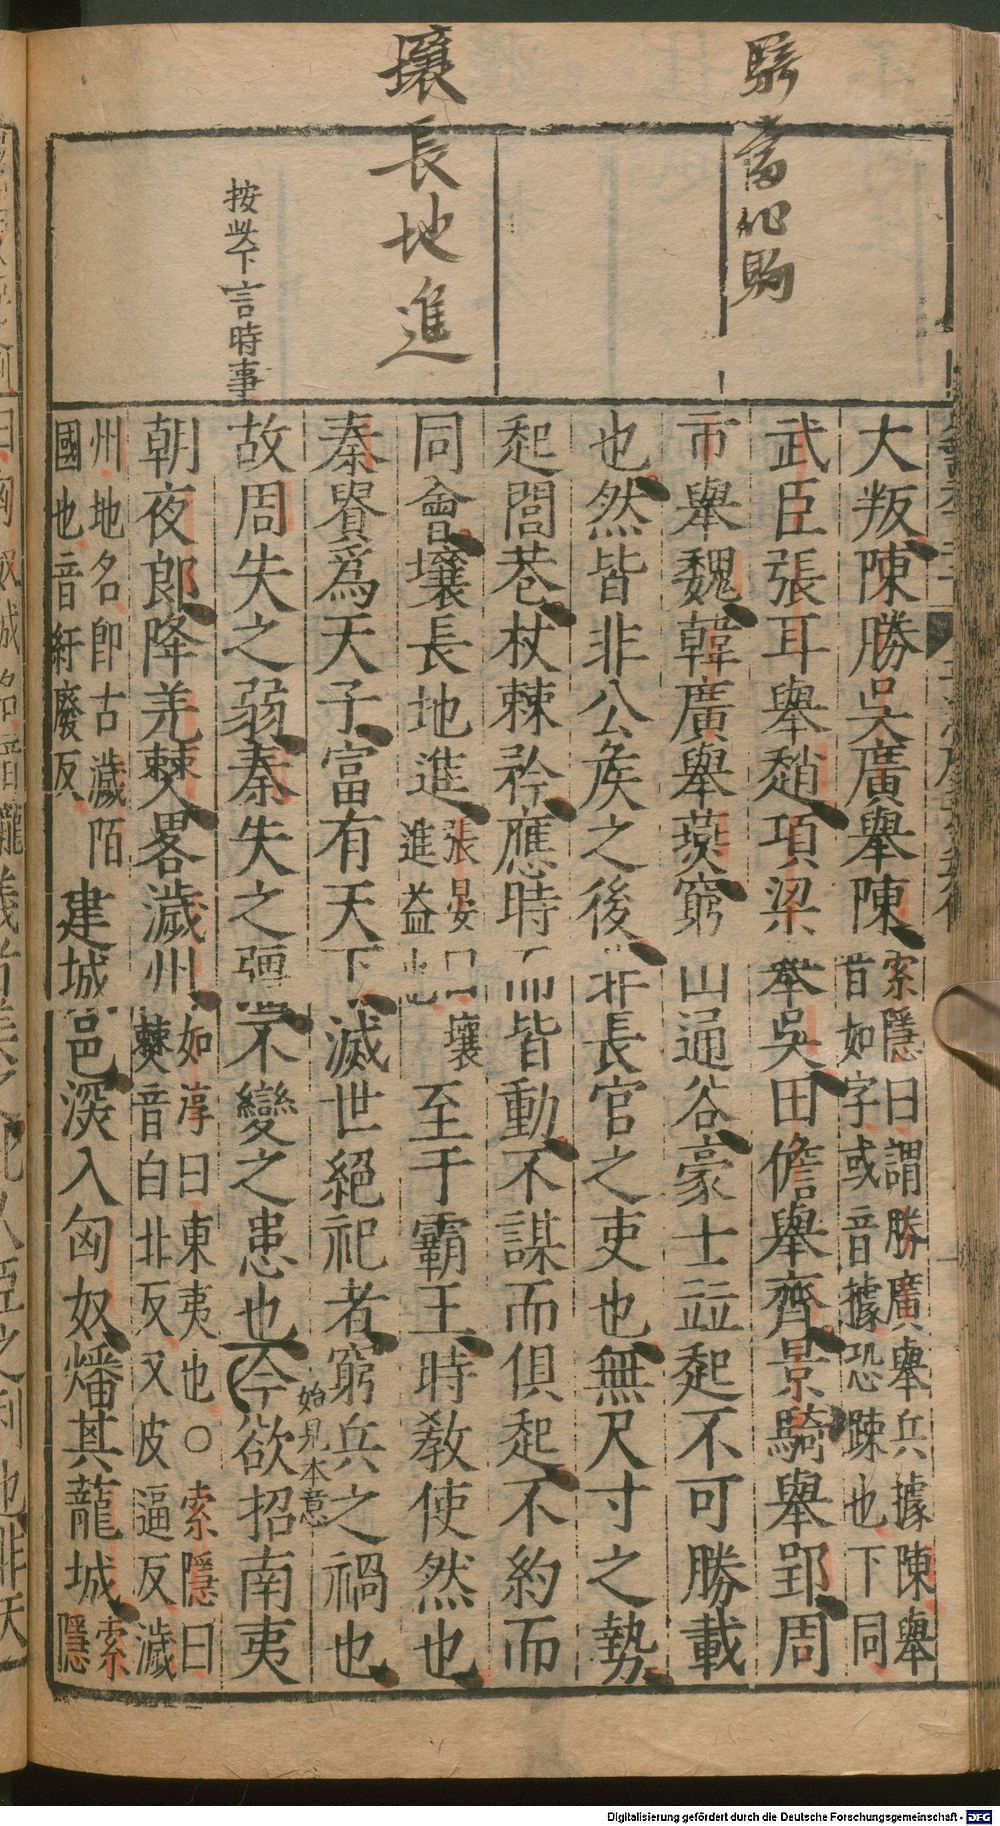 騎當作駒
壤長地進
按此下言時事
大叛陳勝吳廣舉陳索隱曰謂勝廣舉兵據陳舉音如字或音據恐踈也下同
武臣張耳舉趙項梁舉吳田儋舉齊景騎舉郢周
市舉魏韓廣舉燕窮山通谷豪士並起不可勝載
也然皆非公侯之後非長官之吏也無尺寸之勢
起閭巷杖棘矜應時而皆動不謀而俱起不約而
同會壤長地進張晏曰壤進益也至于霸王時敎使然也
秦貴爲天子富有天下滅世絕祀者窮兵之禍也
始見本意
故周失之弱秦失之彊不變之患也今欲招南夷
朝夜郎降羌僰畧濊州如淳曰東夷也○索隱曰僰音白北反又皮逼反濊
州地名卽古濊陌國也音紆廢反建城邑深入匈奴燔其蘢城索隱
Digitalisierung gefördert durch die Deutsche Forschungsgemeinschaft - DFG